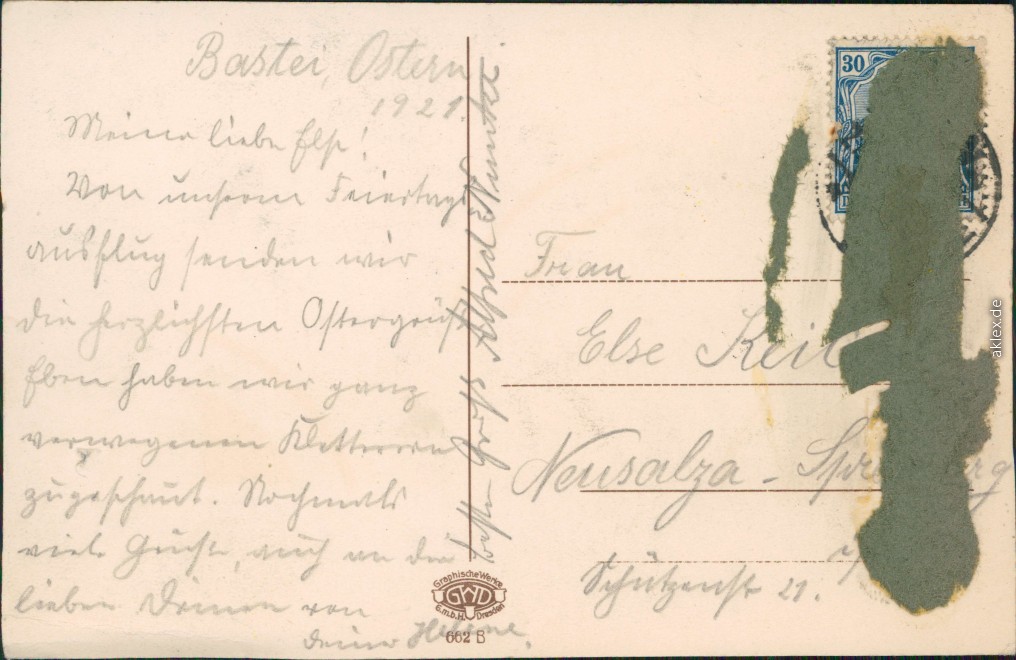 Bastei, Ostern
1921.
Meine liebe Else!
Von unserm Feiertags
ausflug senden wir
die herzlichsten Ostergrüße
Eben haben wir ganz
verwegenen Kletterern
zugeschaut. Nochmals
viele Grüße, auch an die
lieben Deinen von
Deiner Helene.
Gruß Alfred
Frau
Else Keil
Neusalza - Spr
Schützenstr 21.
30
Graphische Werke
GWD
G.m.b.H. Dresden
662 B
aklex.de